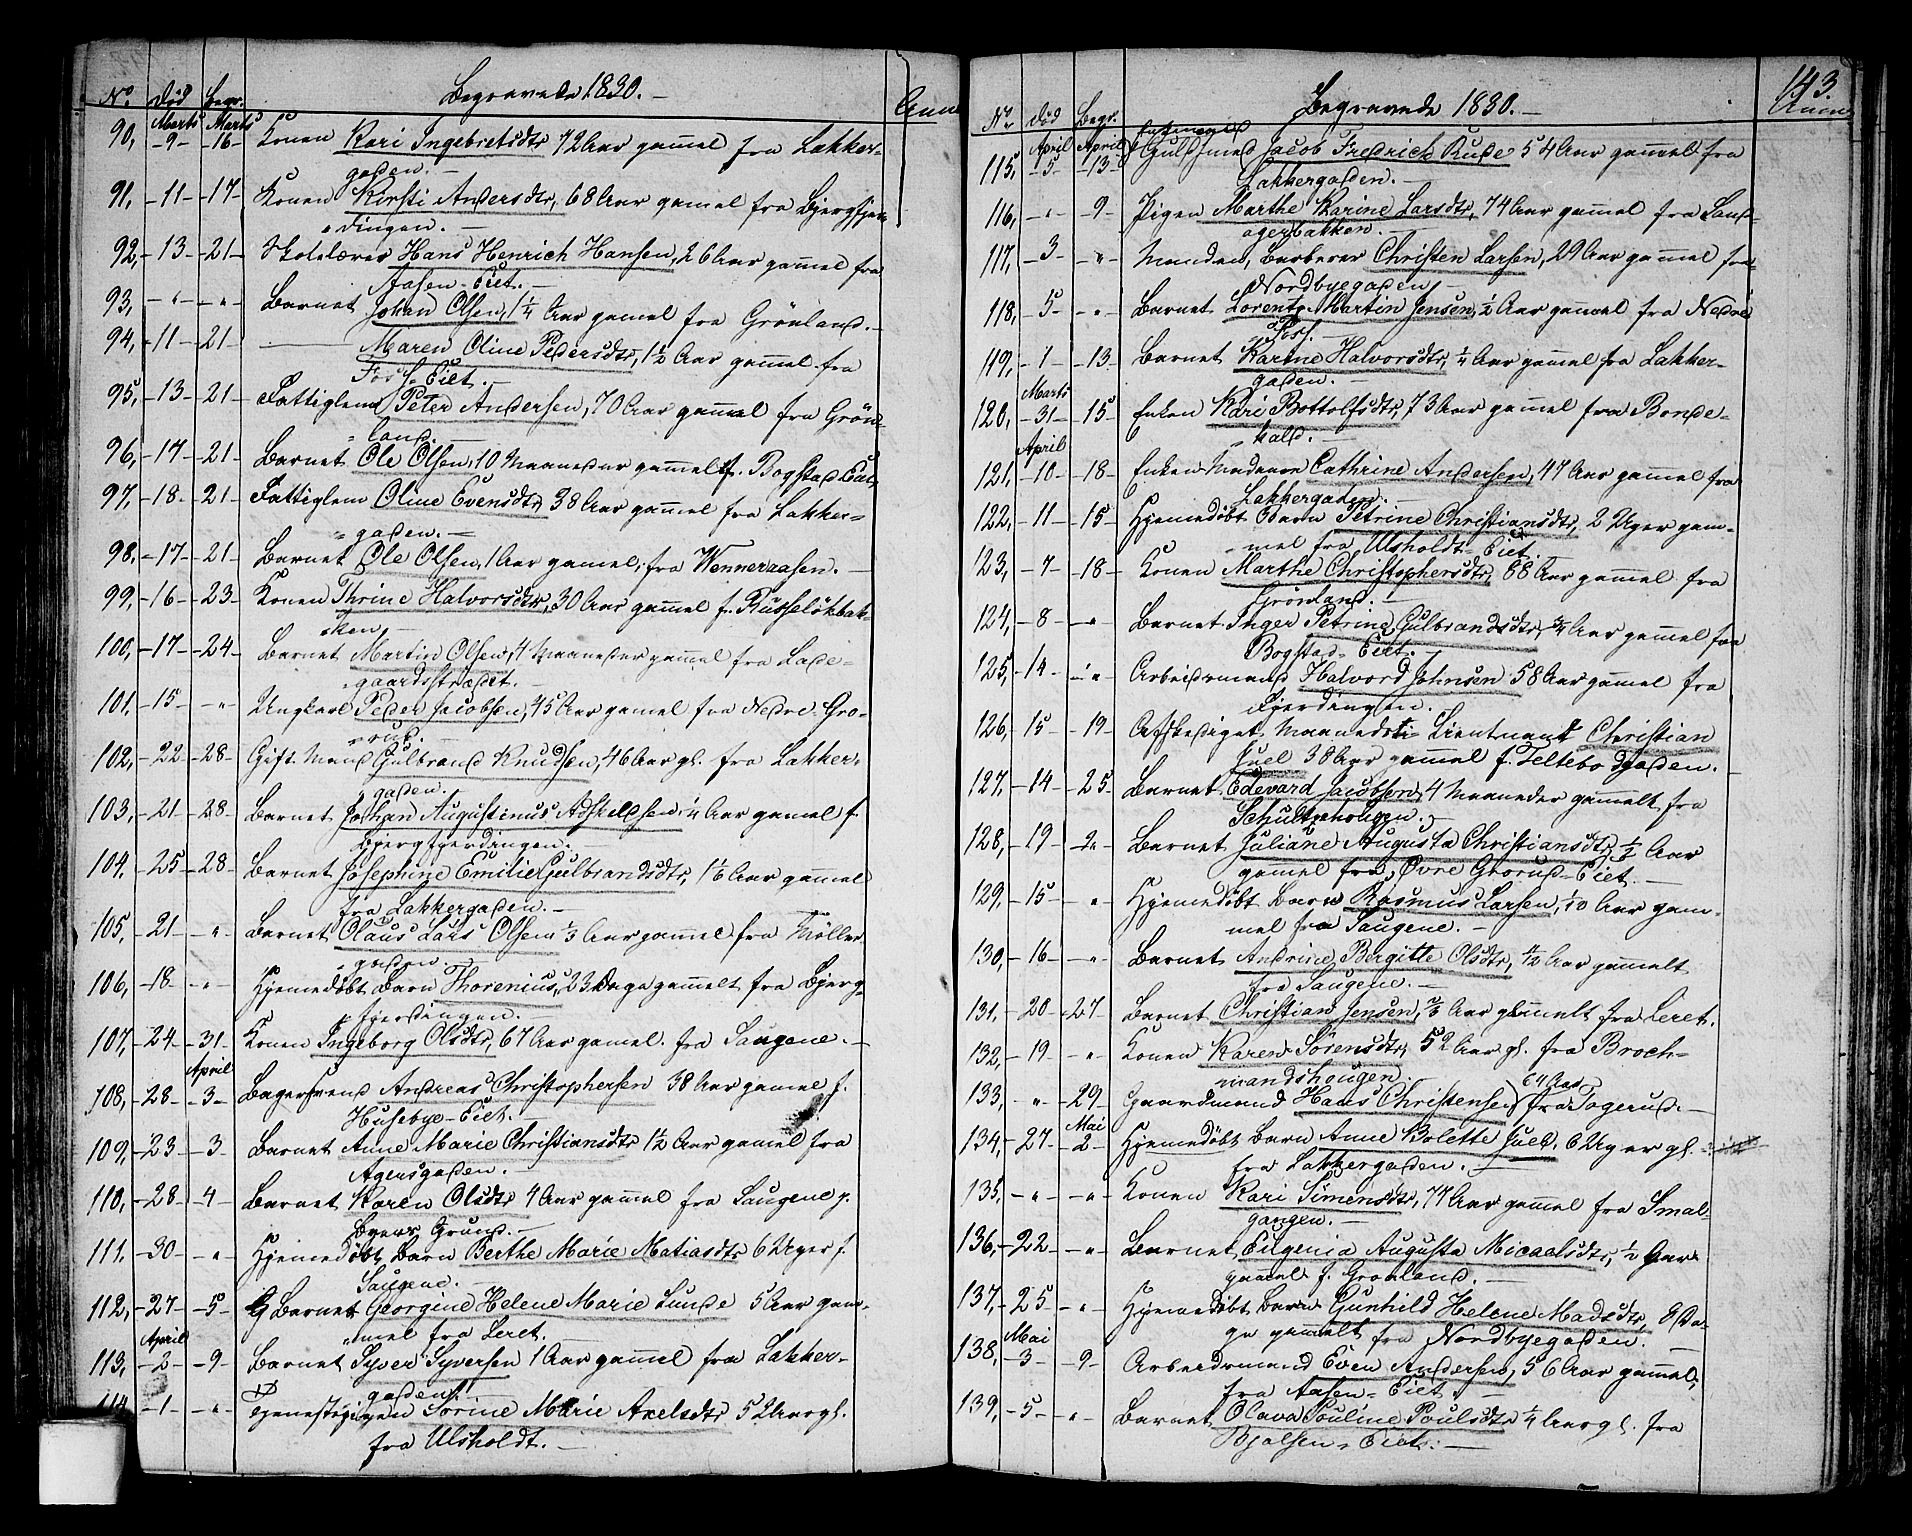 Begravede 1830.
No. Død Begr. Anm
Marts Marts
90, -9- -16- Konen Kari Ingebretsdtr, 72 Aar gammel fra Lakker-
gaden.
91, -11- -17- Konen Kirsti Andersdtr, 68 Aar gamel fra Bjergfjer-
dingen.
92, -13- -21- Skolelærer Hans Henrich Hansen, 26 Aar gamel fra
Aasen-Eiet.
93, -"- -"- Barnet Johan Olsen, 1 1/4 Aar gamel fra Grönland.
94, -11- -21- — Maren Oline Pedersdtr, 1 1/2 Aar gamel fra
Foss-Eiet.
95, -13- -21- Fattiglem Peter Andersen, 70 Aar gammel fra Grön-
land.
96, -17- -21- Barnet Ole Olsen, 10 Maaneder gamelt f. Bogstad Eiet
97, -18- -21- Fattiglem Oline Evensdtr, 38 Aar gammel fra Lakker-
gaden.
98, -17- -21- Barnet Ole Olsen, 1 Aar gamel, fra Wennerzasen.
99, -16- -23- Konen Thrine Halvorsdtr, 30 Aar gammel f. Russelökbak-
ken
100, -17- -24- Barnet Martin Olsen, 4 Maaneder gammel fra Lade-
gaardsstrædet.
101, -15- -"- Ungkarl Peder Jacobsen, 45 Aar gamel fra Nedre-Gro-
rud.
102, -22- -28- Gift Mand Gulbrand Knudsen, 46 Aar gl. fra Lakker-
gaden.
103, -21- -28- Barnet Johan Augustinus Adskelsen, 1/4 Aar gamel f.
Bjergfjerdingen.
104, -25- -28- Barnet Josephine Emilie Gulbrandsdtr, 1 1/6 Aar gamel
fra Lakkergaden.
105, -21- -"- Barnet Olaus Lars Olsen 1/3 Aar gamel fra Møller
gaden.
106, -18- -"- Hjemedøbt Barn Thorenius, 23 Dage gamelt fra Bjerg-
fjerdingen.
107, -24- -31- Konen Ingeborg Olsdtr, 67 Aar gamel. fra Saugene.
April
108, -28- -3- Bagersvend Andreas Christophersen 38 Aar gamel f.
Husebye-Eiet.
109, -23- -3- Barnet Anne Marie Christiansdtr 1 1/2 Aar gamel fra
Agersgaden.
110, -28- -4- Barnet Karen Olsdtr 4 Aar gammel fra Saugene p.
Byens Grund.
111. -30- -"- Hjemedøbt Barn Berthe Marie Matiasdtr 6 Uger f.
Saugene.
112, -27- -5- Barnet Georgine Helene Marie Lunde 5 Aar gam-
mel fra Leret.
April
113, -2- -9- Barnet Syver Syversen 1 Aar gammel fra Lakker-
gaden.
114 -1- -"- Tjenestepigen Sorine Marie Axelsdtr 52 Aar gl.
fra Ulsholdt.
143.
Begravede 1830.
No. Død Begr. Anm
April April
115, -5- -13- Guldsmed Jacob Fredrich Rude 54 Aar gammel fra
Lakkergaden.
116, -"- -9- Pigen Marthe Karine Larsdtr, 74 Aar gammel fra Enep-
agerbakken.
117, -3- -"- Manden, Barberer Christen Larsen, 29 Aar gammel fra
Nordbyegaden
118, -5- -"- Barnet Lorentz Martin Jensen, 1/2 Aar gammel fra Nedre
Foss.
119, -1- -13- Barnet Karine Halvorsdtr, 1/4 Aar gammel fra Lakker-
gaden.
Marts
120, -31- -15- Enken Kari Bottolfsdtr, 73 Aar gammel fra Bonde-
hald.
April
121, -10- -18- Enken Madame Cathrine Andersen, 47 Aar gammel fra
Lakkergaden.
122, -11- -15- Hjemedøbt Barn Petrine Christiansdtr, 2 Uger gam-
mel fra Ulsholdt-Eiet.
123, -7- -18- Konen Marthe Christophersdtr, 88 Aar gammel fra
Grönland.
124, -8- -"- Barnet Inger Petrine Gulbrandsdtr, 3/4 Aar gammel fra
Bogstad-Eiet.
125, -14- -"- Arbeidsmand Halvord Johnsen 58 Aar gammel fra
Fjerdingen.
126, -15- -19- Afskediget Maaneds Lieutnant Christian
Juel 38 Aar gammel f. Teltebodgaden.
127, -14- -25- Barnet Edevard Jacobsen, 4 Maaneder gammelt fra
Schultzehougen.
128, -19- -"- Barnet Juliane Augusta Christiansdtr, 1/2 Aar
gamel fra Øvre Grorud-Eiet.
129, -15- -"- Hjemedøbt Barn Rasmus Larsen, 1/10 Aar gam-
mel fra Saugene.
130, -16- -"- Barnet Andrine Bergitte Olsdtr, 1/2 Aar gammelt
fra Saugene.
131, -20- -27- Barnet Christian Jensen, 2/3 Aar gammelt fra Leret.
132, -19- -"- Konen Karen Sörensdtr, 52 Aar gl. fra Broch-
mandshougen.
133, -"- -29- Gaardmand Hans Christensen 64 Aar fra Togerud.
Mai
134, -27- -2- Hjemedöbt Barn Anne Bolette Juel, 6 Uger gl.
fra Lakkergaden.
135, -"- -"- Konen Kari Simensdtr, 74 Aar gammel fra Smal-
gangen.
136, -22- -"- Barnet Eugenia Augusta Micaelsdtr, 1/2 Aar
gamel f. Grønland.
137, -25- -"- Hjemedøbt Barn Gunhild Helene Madsdtr, 8 Da-
ge gammelt fra Nordbyegaden.
Mai
138, -3- -9- Arbeidsmand Even Andersen, 56 Aar gammel,
fra Aasen-Eiet.
139, -5- -"- Barnet Olava Pouline Poulsdtr 1/4 Aar gl. fra
Bjølsen-Eiet.